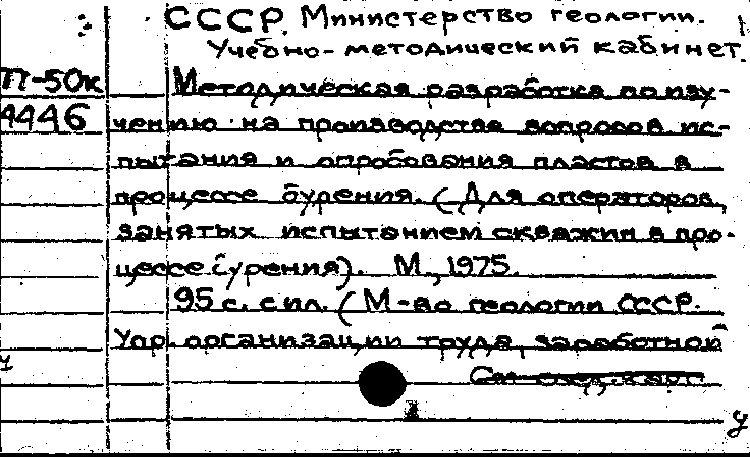 СССР. Министерство геологии.
Учебно-методический кабинет.
П-50к Методическая разработка по изу-
4446 чению на производстве вопросов ис-
пытания и опробования пластов в
процессе бурения. (Для операторов,
занятых испытанием скважин в про-
цессе бурения). М., 1975.
95 с. с ил. (М-во геологии СССР.
Упр. организации труда, заработной
См. след. карт.
у